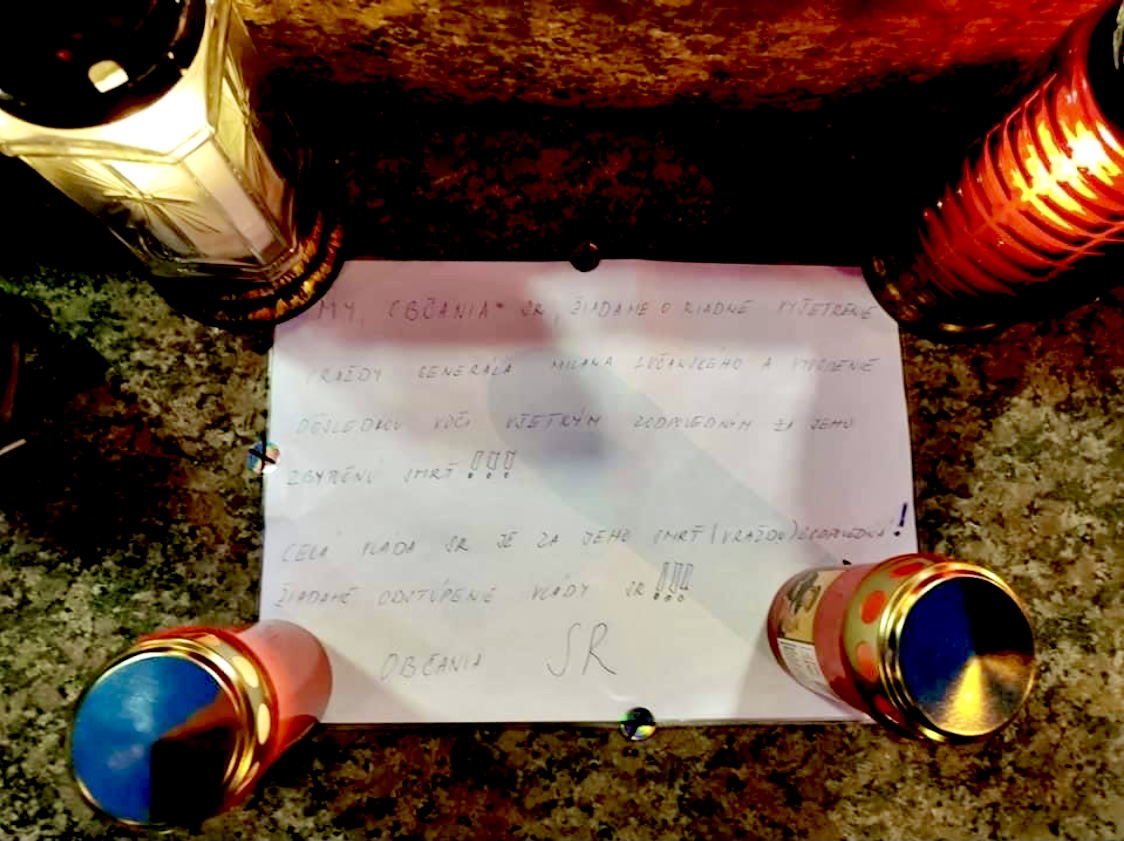 MY, OBČANIA SR, ŽIADAME O RIADNE VYŠETRENIE
VRAŽDY GENERÁLA MILANA LUČANSKÉHO A VYVODENIE
DÔSLEDKOV VOČI VŠETKÝM ZODPOVEDNÝM ZA JEHO
ZBYTOČNÚ SMRŤ!!!
CELÁ VLÁDA SR JE ZA JEHO SMRŤ (VRAŽDU) ZODPOVEDNÁ!
ŽIADAME ODSTÚPENIE VLÁDY SR!!!
OBČANIA SR